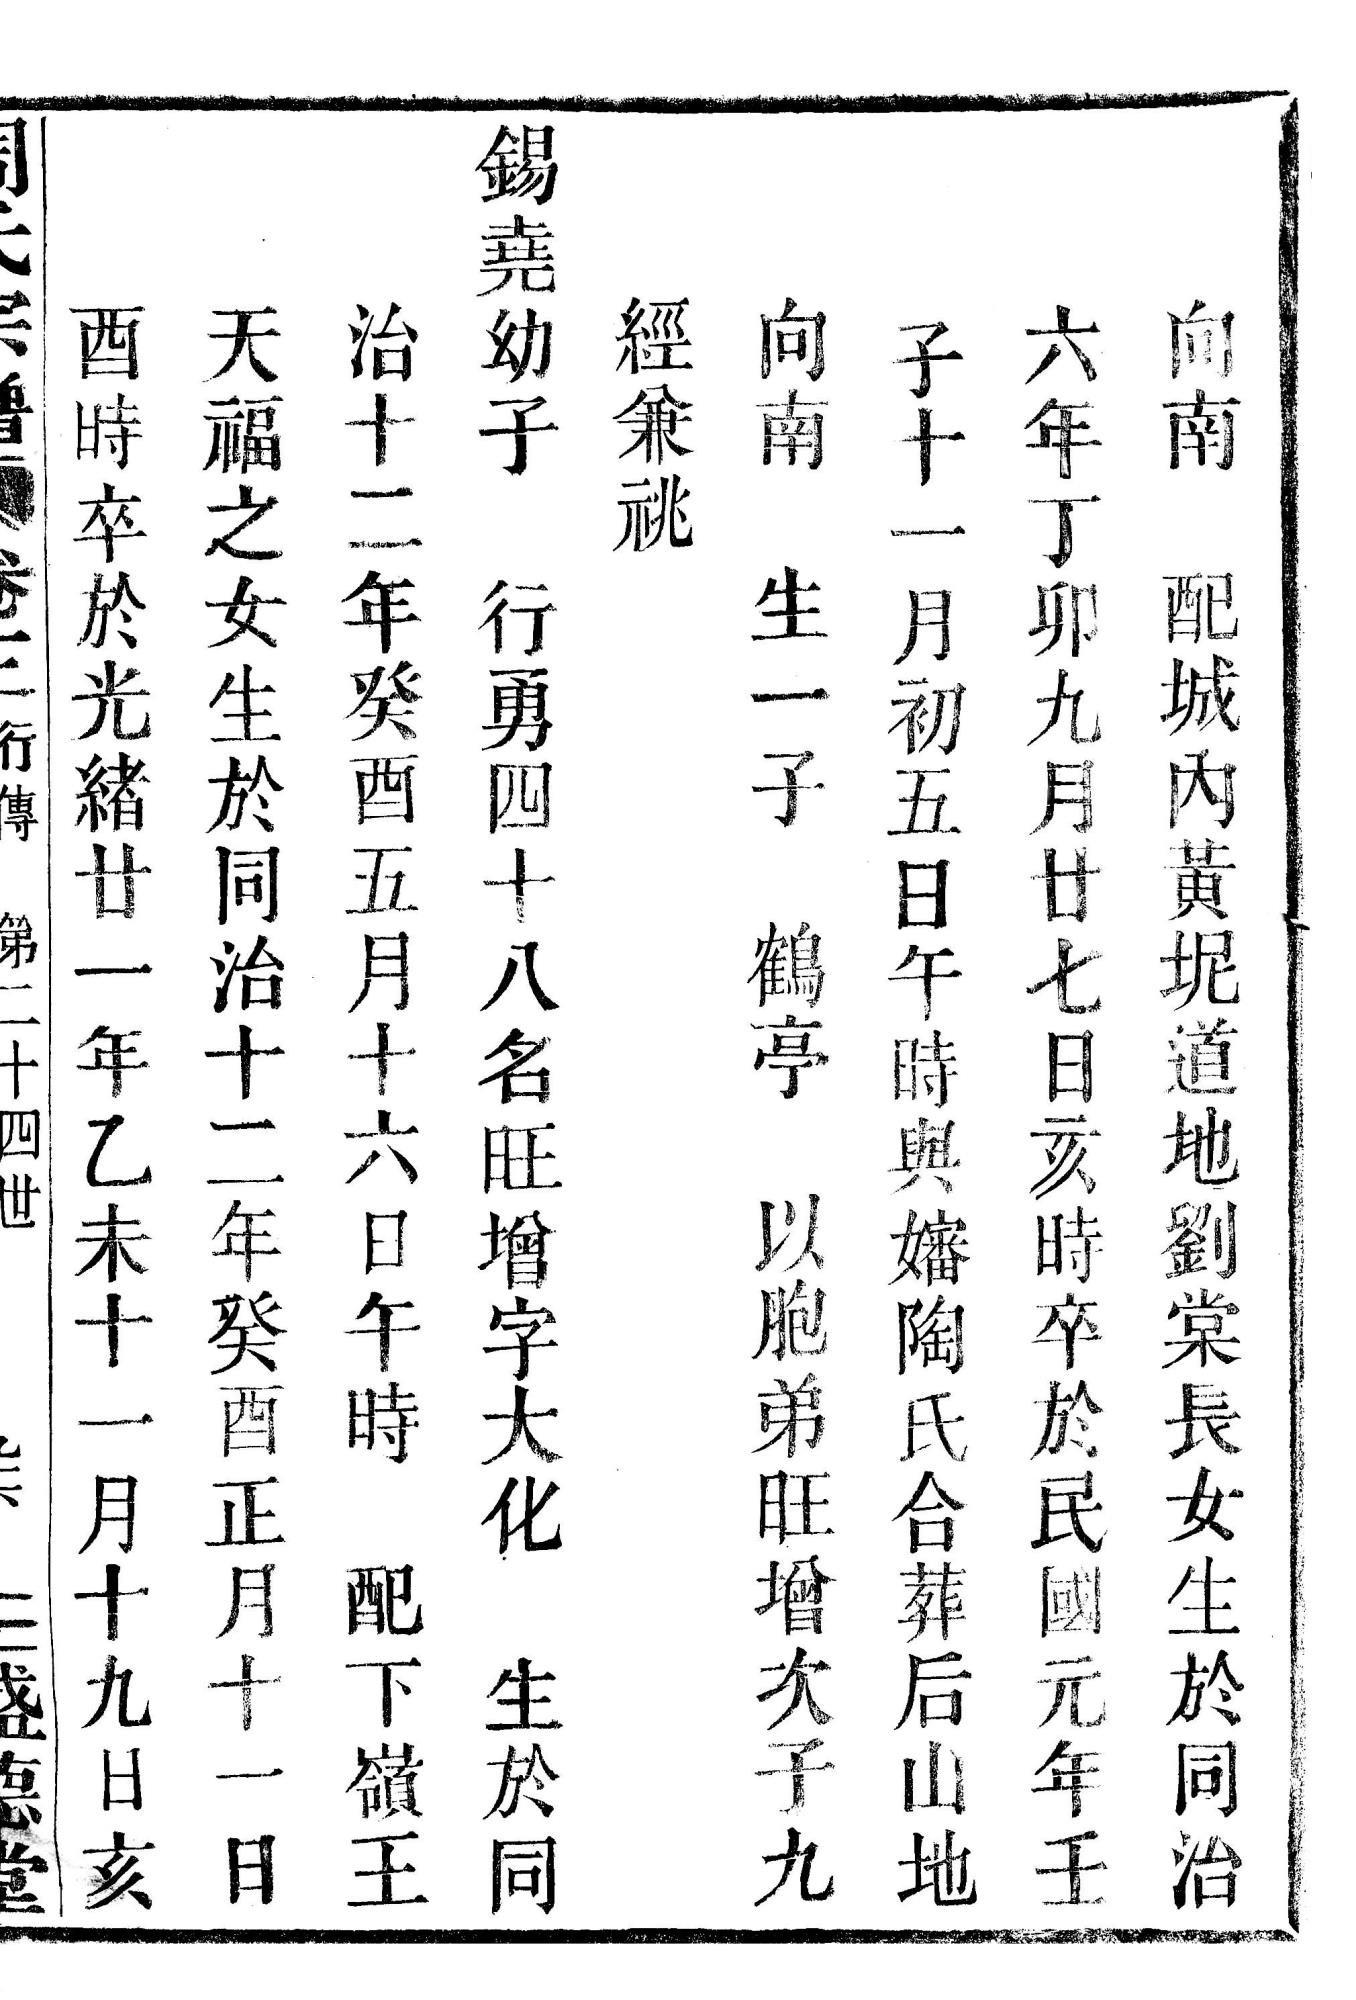 向南　配城內黃坭道地劉棠長女生於同治
六年丁卯九月廿七日亥時卒於民國元年壬
子十一月初五日午時與嬸陶氏合葬后山地
向南　生一子　鶴亭　以胞弟旺增次子九
經兼祧
錫堯幼子　行勇四十八名旺增字大化　生於同
治十二年癸酉五月十六日午時　配下嶺王
天福之女生於同治十二年癸酉正月十一日
酉時卒於光緒廿一年乙未十一月十九日亥
周氏宗譜　卷二行傳　第二十四世　三盛德堂